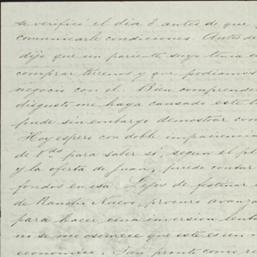 se verifico el dia 8 antes de que
comunicarle condiciones. Antes de
dijo que un pariente suyo tenia
comprar terreno y que podiamos
negocio con el. Bien comprende
disgusto me haya causado este
pude sin embargo demostrar
Hoy espero con doble impaciencia
de Vds para saber si, segun el
y la oferta de Juan, puedo contar
fondos en esa. Lejos de festinar
de Rancho Nuevo, procuro
para hacer una inversion
no se me oscurece que este es un
economico. Tan pronto como